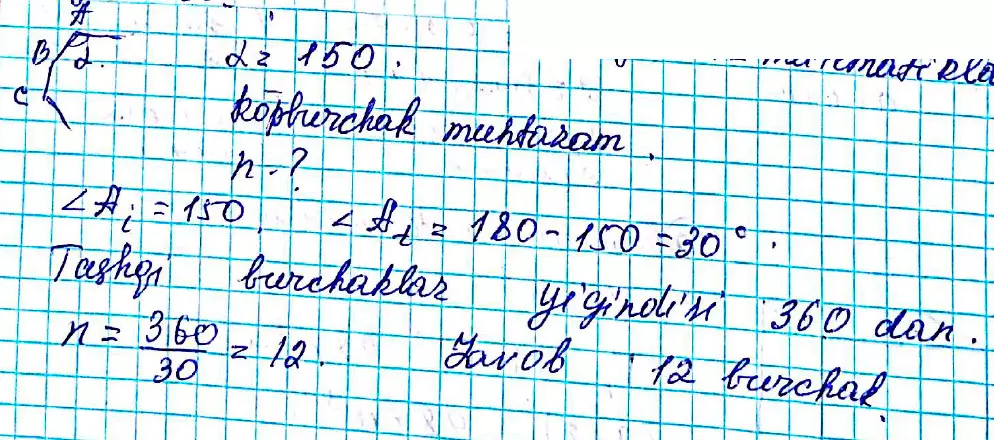 A
B α. α = 150.
C
ko̅pburchak muntazam.
n-?
∠A_i = 150. ∠A_t = 180 - 150 = 30°.
Tashqi burchaklar yigindisi 360 dan.
n = 360/30 = 12. Javob 12 burchak.